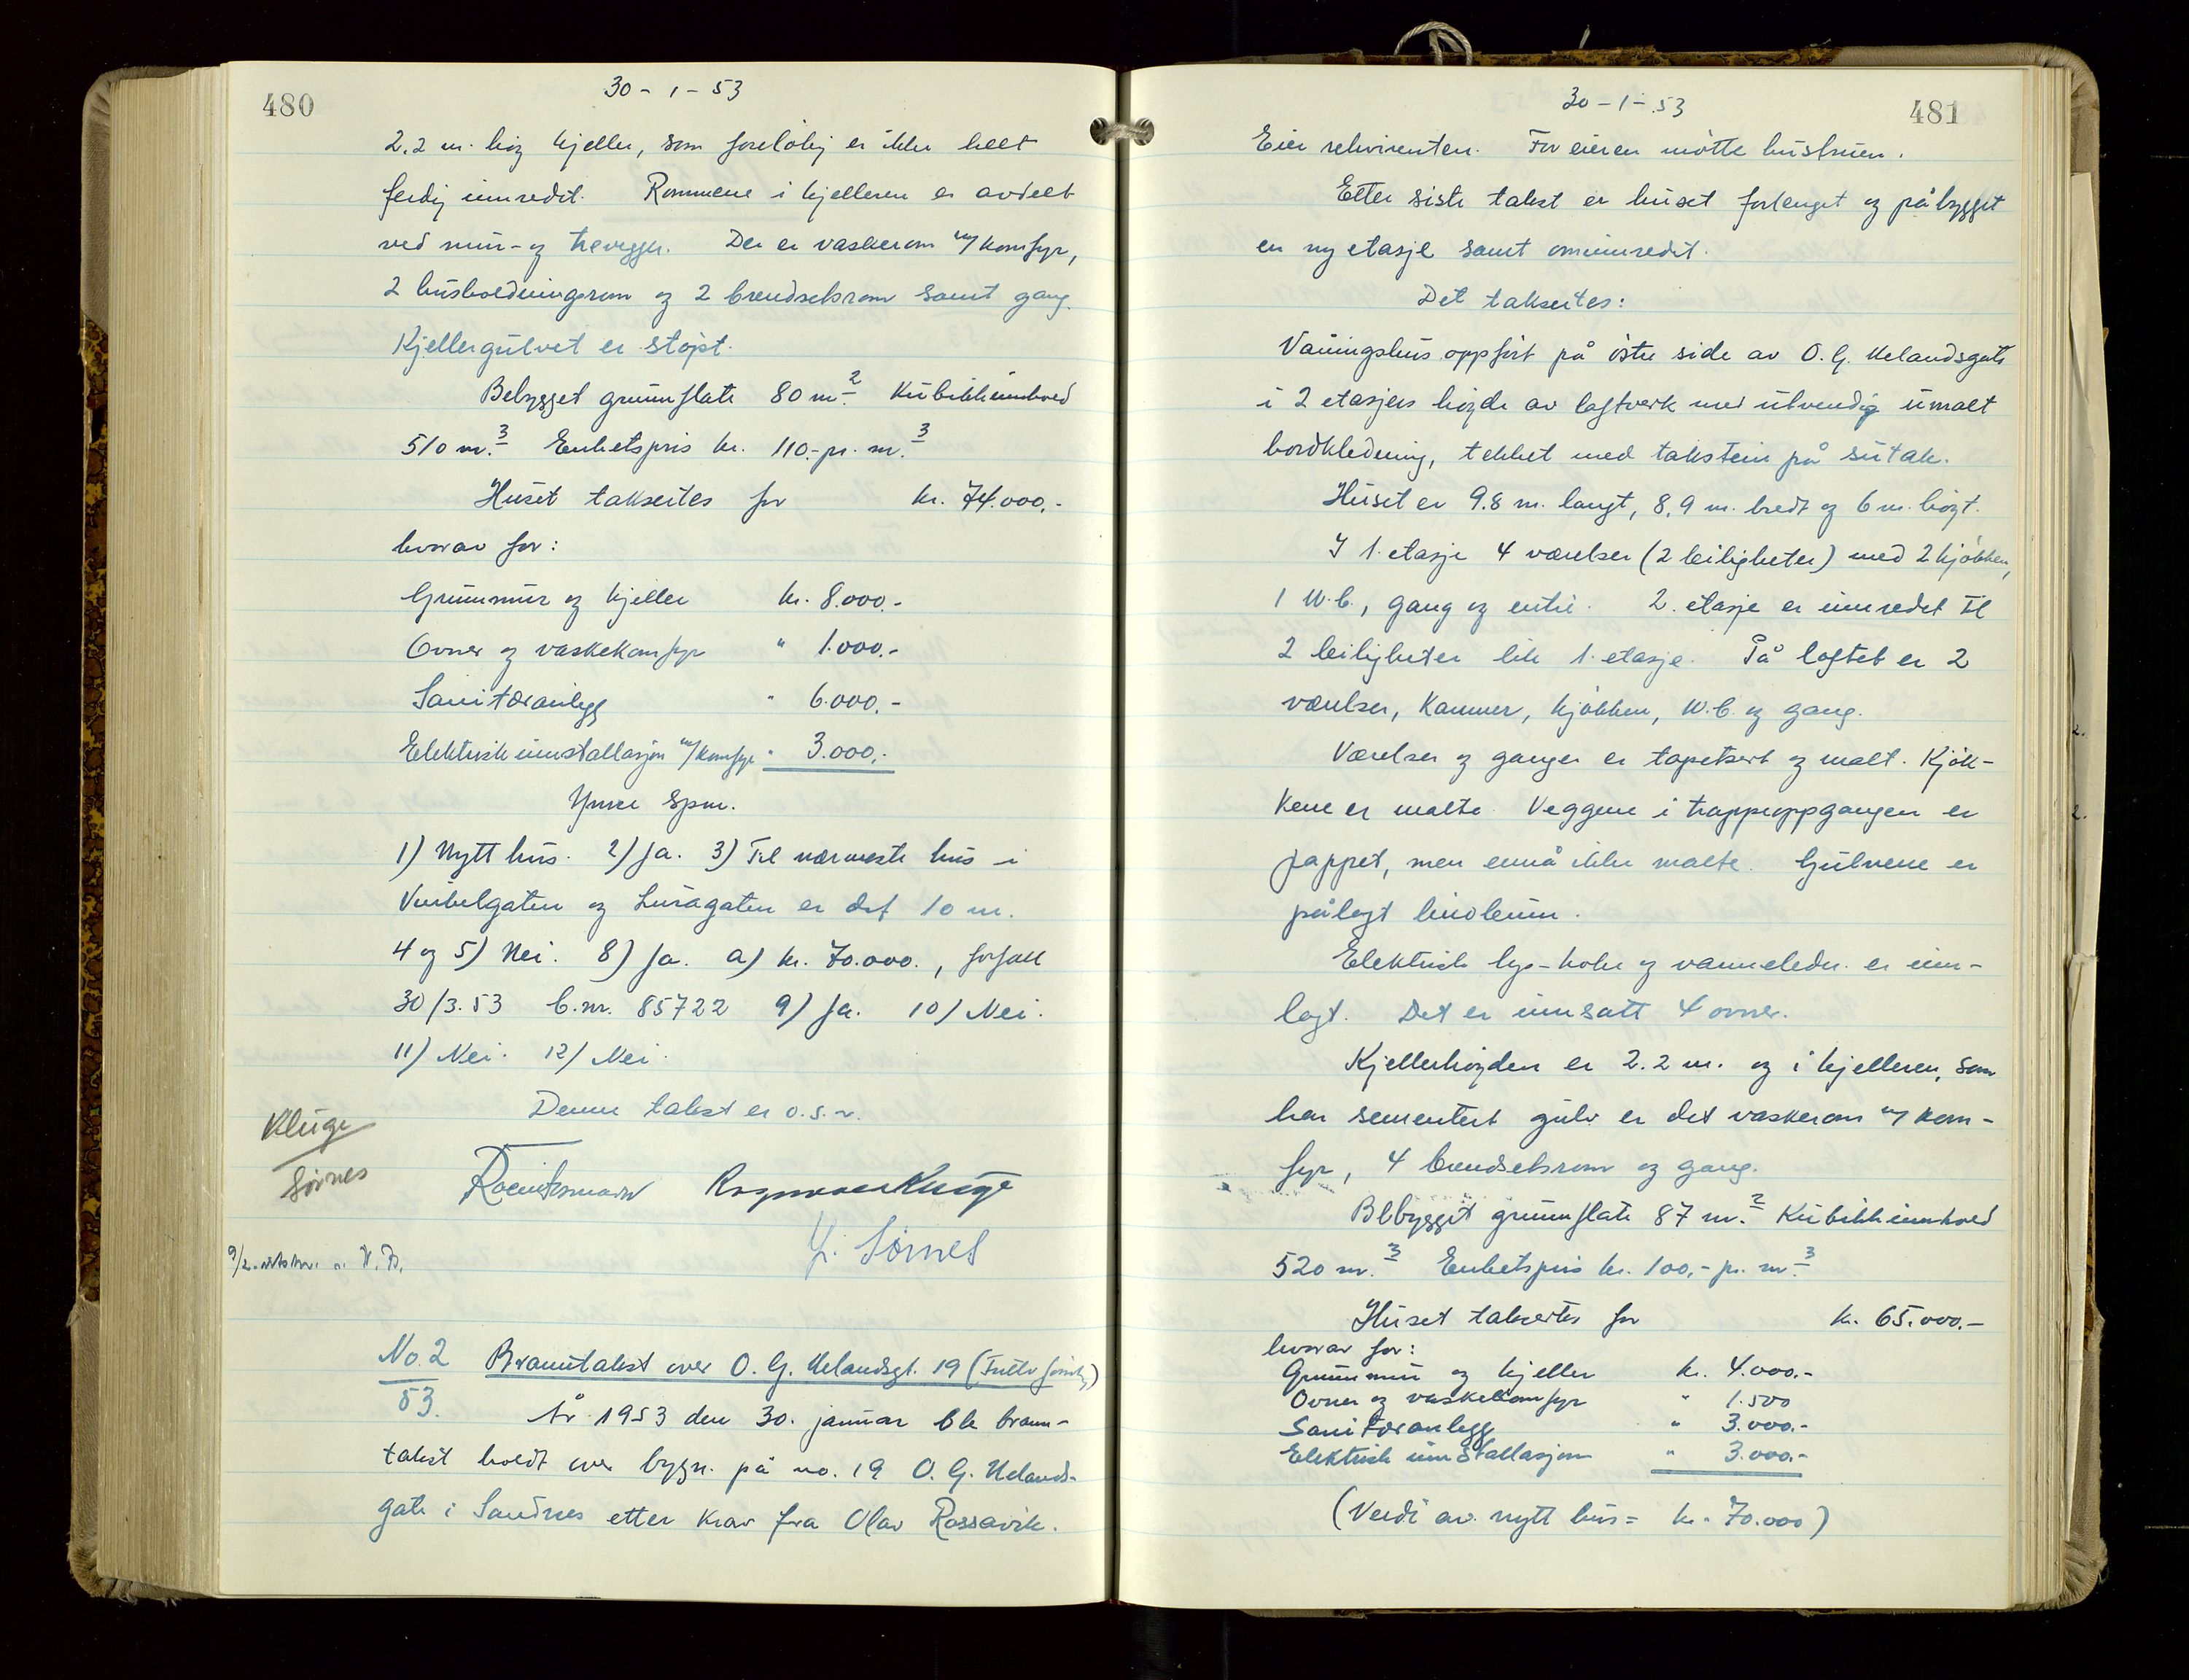 480
30 - 1 - 53
2.2 m. høg kjeller, som foreløbig er ikke helt
ferdig innredet. Rommene i kjelleren er avdelt
ved mur- og trevegger. Der er vaskerom m/komfyr,
2 husholdningsrom og 2 brendselsrom samt gang.
Kjellergulvet er støpt.
Bebygget grunnflate 80 m.² Kubikkinnhold
510 m.³ Enhetspris kr. 110.- pr. m.³
Huset takseites for kr. 74.000.-
hvorav for:
Grunnmur og kjeller kr. 8.000.-
Ovner og vaskekomfyr " 1.000.-
Sanitæranlegg " 6.000.-
Elektrisk innstallasjon m/komfyr " 3.000.-
Ymse spm.
1) Nytt hus. 2) Ja. 3) Til nærmeste hus i
og Luragaten er det 10 m.
4 og 5) Nei. 8) Ja. a) kr. 70.000., forfall
30/3.53 b.nr. 85722 9) Ja. 10) Nei.
11) Nei. 12) Nei.
Denne takst er o.s.v.
Kluge
Sørnes
Ragnvald Kluge
Y. Sørnes
9/2.
No. 2
53.
Branntakst over O. G. Uelandsgt. 19
År 1953 den 30. januar ble brann-
takst holdt over bygn. på no. 19 O. G. Uelands-
gate i Sandnes etter krav fra Olav Rossavik.
30 - 1 - 53
481
Eier rekvirenten. For eieren møtte hustruen.
Etter siste takst er huset forlenget og påbygget
en ny etasje samt ominnredet.
Det takseites:
Våningshus oppført på østre side av O. G. Uelandsgate
i 2 etasjers høyde av laftverk med utvendig umalt
bordkledning, tekket med takstein på sutak.
Huset er 9.8 m. langt, 8,9 m. bredt og 6 m. høgt.
I 1. etasje 4 værelser (2 leiligheter) med 2 kjøkken,
1 W.C., gang og entre. 2. etasje er innredet til
2 leiligheter lik 1. etasje. På loftet er 2
værelser, kammer, kjøkken, W.C. og gang.
Værelser og ganger er tapetsert og malt. Kjøk-
kene er malte. Veggene i trappeoppgangen er
pappet, men ennå ikke malte. Gulvene er
pålagt linoleum.
Elektrisk lys- koke og vannledn. er inn-
lagt. Det er innsatt 4 ovner.
Kjellerhøyden er 2.2 m. og i kjelleren, som
har sementert gulv er det vaskerom m/ kom-
fyr, 4 brendselsrom og gang.
Bebygget grunnflate 87 m.² Kubikkinnhold
520 m.³ Enhetspris kr. 100,- pr. m.³
Huset takseites for kr. 65.000.-
hvorav for:
Grunnmur og kjeller kr. 4.000.-
Ovner og vaskekomfyr " 1.500
Sanitæranlegg " 3.000.-
Elektrisk innstallasjon " 3.000.-
(Verdi av nytt hus = kr. 70.000)